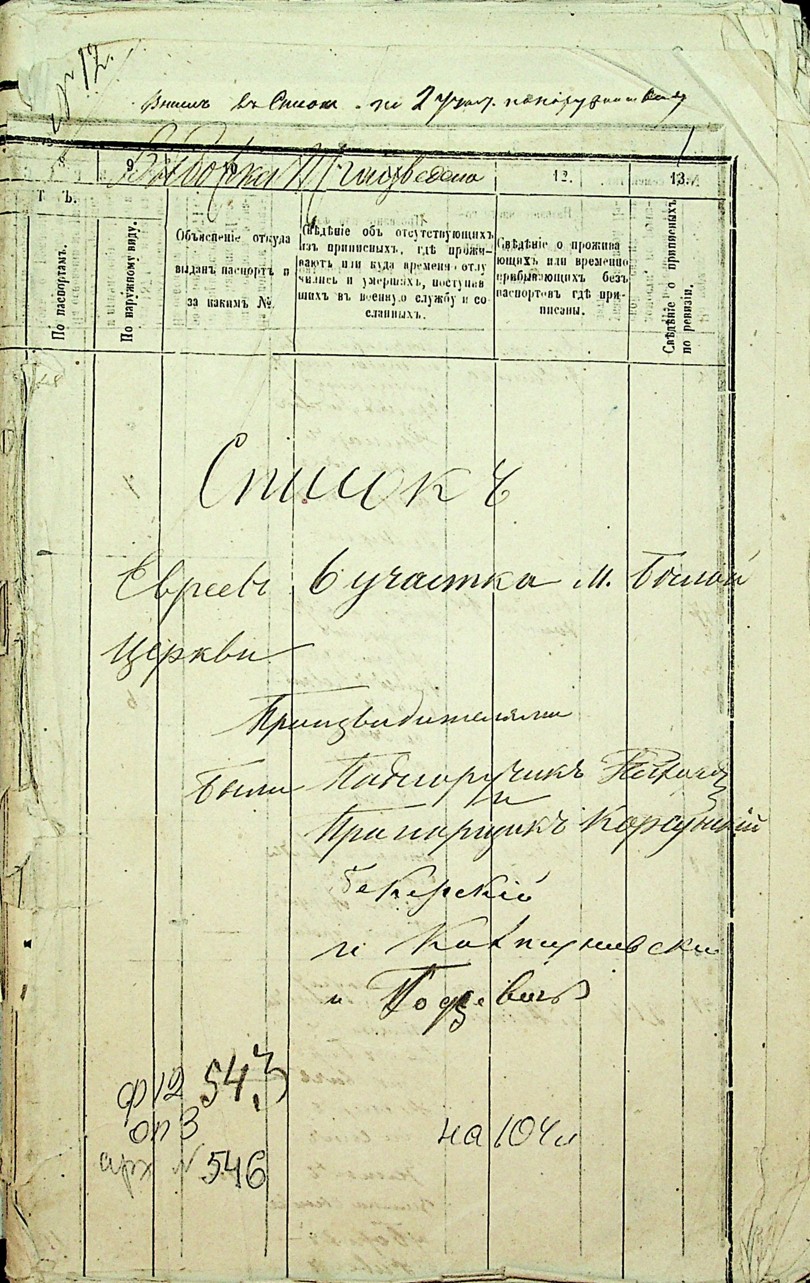 12.
въ Список по 2 участ.
Выборка Произведена
9 12. 13.
Т Ъ.
По паспортамъ.
По наружному виду.
Объясненіе откуда
выданъ паспортъ и
за какимъ №.
Свѣдѣніе объ отсутствующихъ
изъ приписныхъ, гдѣ прожи-
ваютъ или куда временно отлу
чились и умершихъ, поступив
шихъ въ военную службу и со
сланныхъ.
Свѣдѣніе о прожива
ющихъ или временно
прибывающихъ безъ
паспортовъ гдѣ при-
писаны.
Свѣдѣніе о приписныхъ
по ревизіи.
Списокъ
Евреевъ 6 участка м. Бѣлой
Церкви
Производителями
были Подпоручикъ
и
Прапорщикъ Корсунскій
и
и
ф 12 543
оп 3
арх № 546
на 104 л